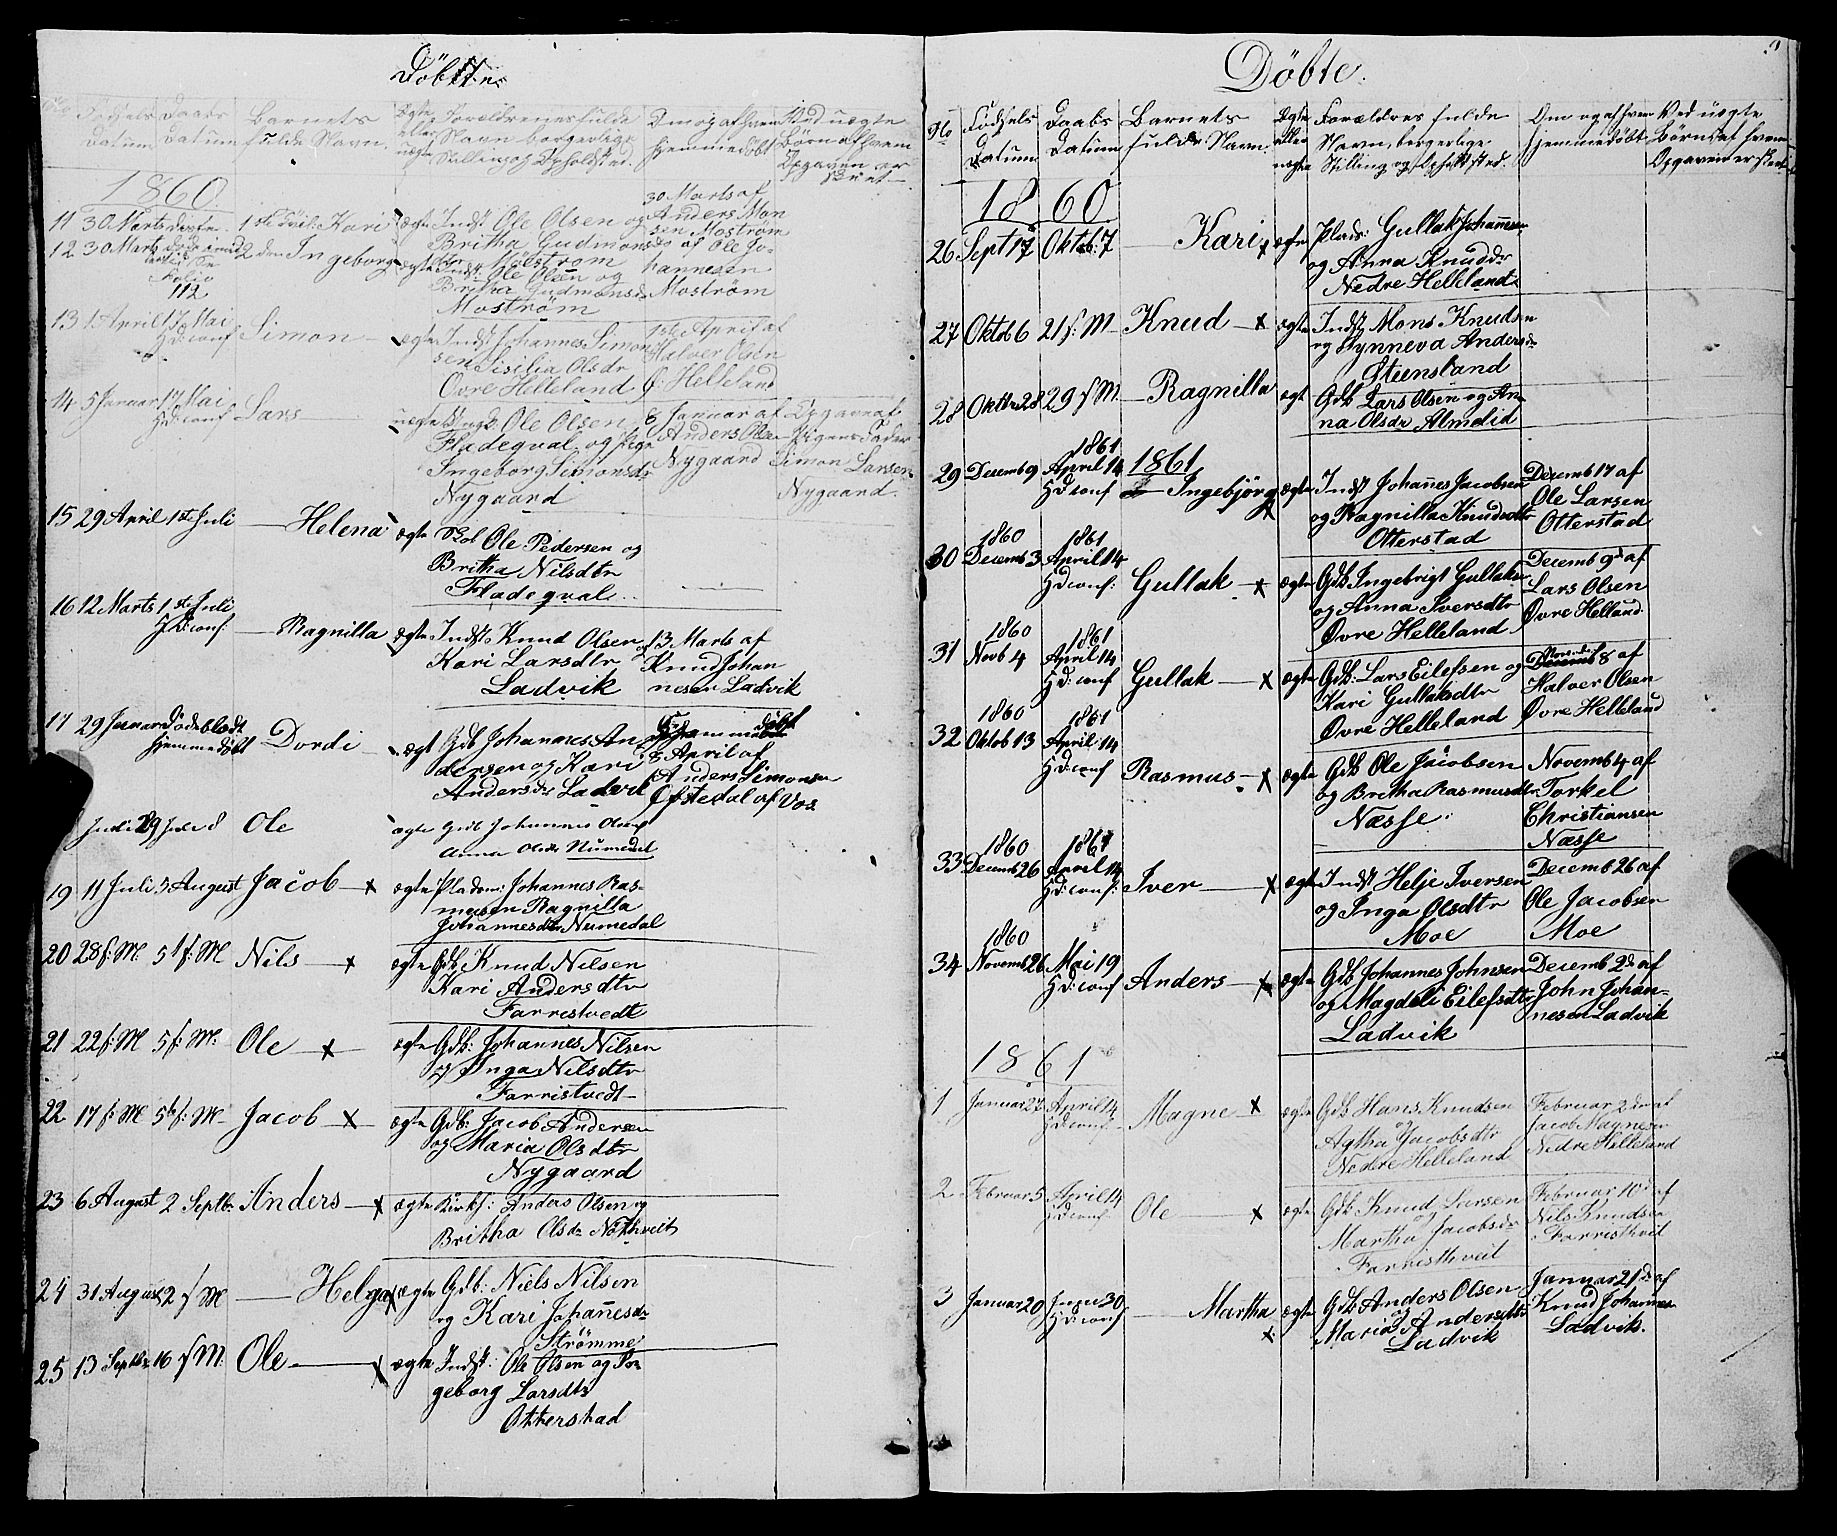 Döbte
Födsels Datum
Daabs Datum
Barnets fulde Navn.
Ægte eller uægte
Forældrenes fulde Navn borgerlige Stilling og Opholdsted.
Om og af hvem hjemmedöbt
Ved uægte Börn af hvem Opgaven er skeet
1860.
11 30 Marts 1ste Tvil: Kari ægte Indst Ole Olsen og
Britha Gudmonsdr
Mostrøm
30 Marts af
Anders Mon
sen Mostrøm
12 30 Marts 2den Ingeborg ægte Indst: Ole Olsen og
Folio
112
Britha Gudmonsdr
Mostrøm
af Ole Jo-
hannesen
Mostrøm
13 1 April 17 Mai Simon ægte Indst Johannes Simon
Hd: conf
sen Sisilia Olsdr
Øvre Helleland
1ste April af
Halver Olsen
Ø: Helleland
14 5 Januar 17 Mai Lars uægte Ungk: Ole Olsen
Hd: conf
Fladeqval og Pige
Ingeborg Simonsdr
Nygaard
8 Januar af
Anders Olsen
Nygaard
Opgave af
Pigens Fader
Simon Larsen
Nygaard.
15 29 April 1ste Juli Helena ægte Ole Pedersen og
Britha Nilsdtr
Fladeqval
16 12 Marts 1ste Juli Ragnilla ægte Indst: Knud Olsen og
Hd: conf:
Kari Larsdtr
Ladvik
13 Marts af
Knud Johan
nesen Ladvik
17 29 Januar Dordi ægt Gdb Johannes An
hjemmedöbt
dersen og Kari
Andersdr Ladvik
April af
Anders Simonsen
af Vos
Juni 29 Juli 8 Ole ægte Gdb Johannes Olsen
Anna Olsdr Numedal
19 11 Juli 5 August Jacob x ægte Pladsm: Johannes Ras-
musen Ragnilla
Johannesdtr Numedal
20 28 f: M. 5 f: M Nils x ægte Gdb Knud Nilsen
Kari Andersdtr
Farrestvedt
21 22 f: M 5 f: M: Ole x ægte Gdb: Johannes Nilsen
og Inga Nilsdtr
Farristvedt
22 17 f: M 5 f: M Jacob x ægte Gdb: Jacob Andersen
og Maria Olsdtr
Nygaard
23 6 August 2 Septbr Anders x ægte Kirks: Anders Olsen og
Britha Olsdr Nøthveit
24 31 August 2 f M Helga x ægte Gdb: Niels Nilsen
og Kari Johannesdr
Strømme
25 13 Septbr 16 f M. Ole x ægte Indst: Ole Olsen og In
geborg Larsdtr
Otterstad
Döbte.
No
Födsels Datum
Daabs Datum
Barnets fulde Navn
Ægte eller uægte
Forældres fulde Navn, borgerlige Stilling og Opholdsted.
Om og af hvem hjemmedöbt
Ved uægte Börn af hvem Opgaven er skeet
1860
26 Sept 17 Oktob: 7 Kari x ægte Plads: Gullak Johannesen
og Anna Knudsdr
Nedre Helleland
27 Oktob 6 21 f: M Knud x ægte Indst Mons Knudsen
og Synneva Andersdr
Steensland
28 Oktbr 28 29 f M. Ragnilla ægt Gdb Lars Olsen og An
na Olsdr Almelid
1861
29 Decemb 9 April 14 1861 Ingebjörg x ægte Indst Johanes Jacobsen
Hd: conf
og Ragnilla Knudsdtr
Otterstad
Decemb 17 af
Ole Larsen
Otterstad
1860 1861
30 Decemb 3 April 14 Gullak x ægte Gdb. Ingebrigt Gullaksen
Hd: conf:
og Anna Iversdtr
Øvre Helleland
Decemb 9de af
Lars Olsen
Øvre Helland
1860 1861
31 Novb 4 April 14 Gullak x ægte Gdb: Lars Eilefsen og
Hd: conf
Kari Gullaksdtr
Øvre Helleland
Decemb 8 af
Halver Olsen
Øvre Helleland
1860 1861
32 Oktob 13 April 14 Rasmus x ægte Gdb Ole Jacobsen
Hd: conf
og Britha Rasmusdtr
Næsse.
Novemb 4 af
Torkel
Christiansen
Næsse
1860 1861
33 Decemb 26 April 14 Iver x ægte Indst Helje Iversen
Hd: conf:
og Inga Olsdtr
Moe
Decemb 26 af
Ole Jacobsen
Moe
1860
34 Novemb 26 Mai 19 Anders x ægte Gdb Johannes Johnsen
Hd: conf
og Magdeli Eilefsdtr
Ladvik
Decemb 2de af
John Johan-
nesen Ladvik
1861
1 Januar 27 April 14 Magne x ægte Gdb Hans Knudsen
Hd: conf
og Agtha Jacobsdtr
Nedre Helleland
Februar 2den af
Jacob Magnesen
Nedre Helleland
2 Februar 5 April 14 Ole x ægte Gdb Knud Larsen
Hd: conf
og Martha Jacobsdr
Farristhveit
Februar 10de af
Nils Knudsen
Farristhveit
3 Januar 20 Juni 30 Martha x ægte Gdb Anders Olsen
Hd: conf
og Maria Andersdtr
Ladvik
Januar 21de af
Knud Johannes
Ladvik.